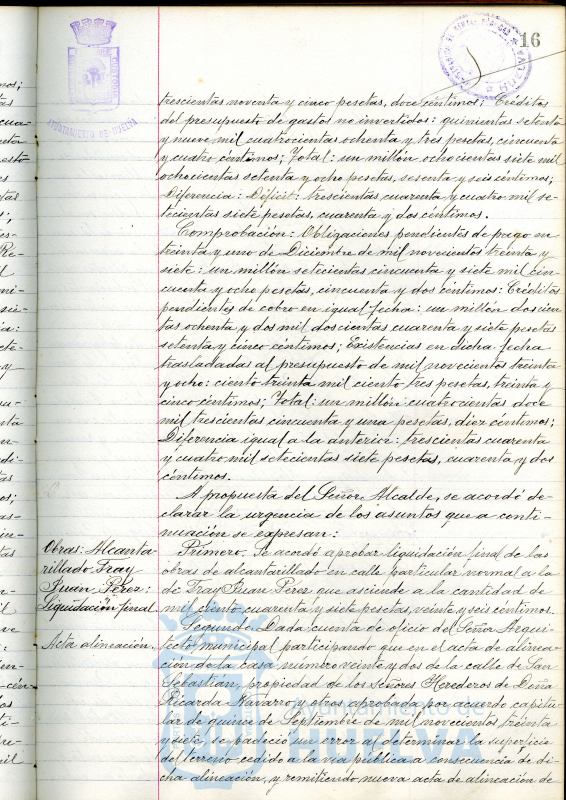 16
AYUNTAMIENTO DE HUELVA
trescientas noventa y cinco pesetas, doce céntimos; Créditos
del presupuesto de gastos no invertidos: quinientas setenta
y nueve mil cuatrocientas ochenta y tres pesetas, cincuenta
y cuatro céntimos; Total: un millón ochocientas siete mil
ochocientas setenta y ocho pesetas, sesenta y seis céntimos;
Diferencia: Déficit: trescientas cuarenta y cuatro mil se-
tecientas siete pesetas, cuarenta y dos céntimos.
Comprobación: Obligaciones pendientes de pago en
treinta y uno de Diciembre de mil novecientos treinta y
siete: un millón setecientas cincuenta y siete mil cin-
cuenta y ocho pesetas, cincuenta y dos céntimos: Créditos
pendientes de cobro en igual fecha: un millón doscien
tas ochenta y dos mil doscientas cuarenta y siete pesetas
setenta y cinco céntimos; Existencias en dicha fecha
trasladadas al presupuesto de mil novecientos treinta
y ocho: ciento treinta mil ciento tres pesetas, treinta y
cinco céntimos; Total: un millón cuatrocientas doce
mil trescientas cincuenta y una pesetas, diez céntimos;
Diferencia igual a la anterior: trescientas cuarenta
y cuatro mil setecientas siete pesetas, cuarenta y dos
céntimos.
A propuesta del Señor Alcalde, se acordó de-
clarar la urgencia de los asuntos que a conti-
nuación se expresan:
Obras: Alcanta-
rillado Fray
Juan Pérez:
Liquidación final
Primero. Se acordó aprobar liquidación final de las
obras de alcantarillado en calle particular normal a la
de Fray Juan Pérez que asciende a la cantidad de
mil ciento cuarenta y siete pesetas, veinte y seis céntimos.
Acta alineación.
Segundo. Dada cuenta de oficio del Señor Arqui-
tecto municipal participando que en el acta de alinea-
ción de la casa número veinte y dos de la calle de San
Sebastián, propiedad de los Señores Herederos de Doña
Ricarda Navarro y otros aprobada por acuerdo capitu-
lar de quince de Septiembre de mil novecientos treinta
y siete, se padeció un error al determinar la superficie
del terreno cedido a la vía pública a consecuencia de di-
cha alineación, y remitiendo nueva acta de alineación de
Ayuntamiento de
HUELVA